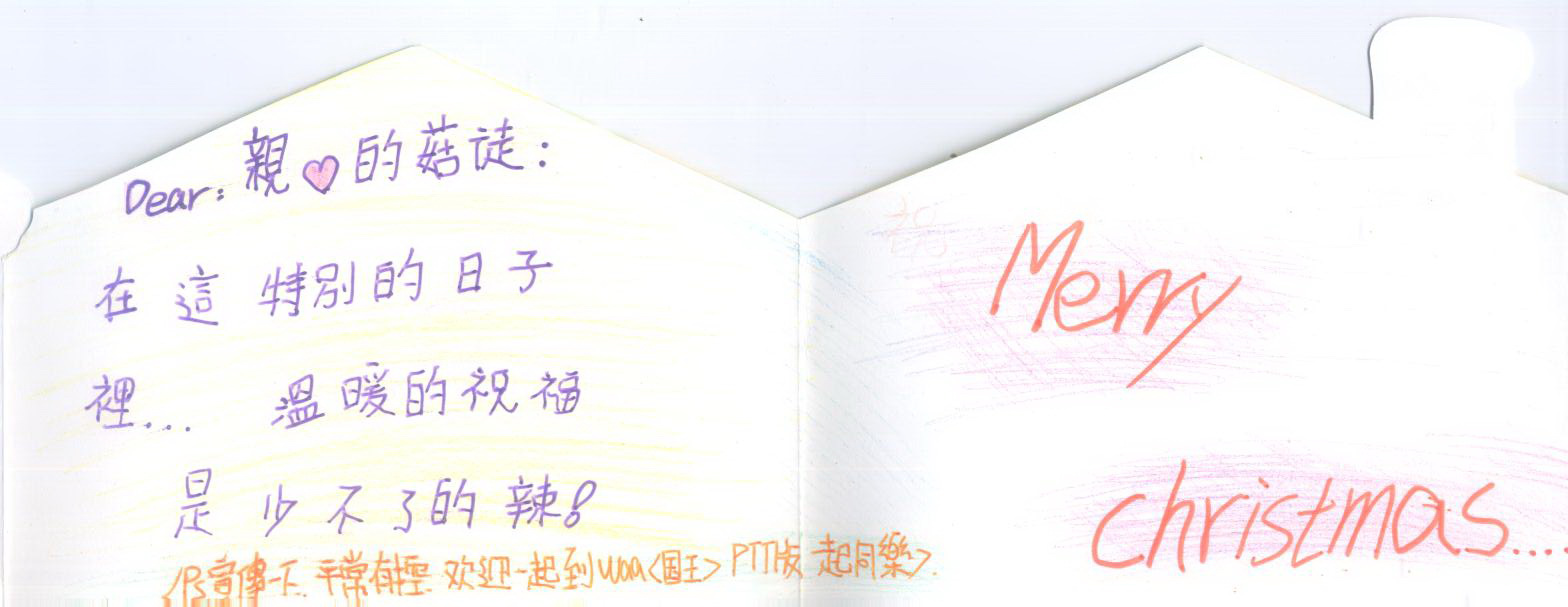 Dear: 親♡的菇徒:
在這特別的日子
裡... 溫暖的祝福
是少不了的辣!
<PS宣傳一下. 平常有空. 欢迎一起到waa<国王> PTT版 一起同樂>.
祝
Merry
christmas...